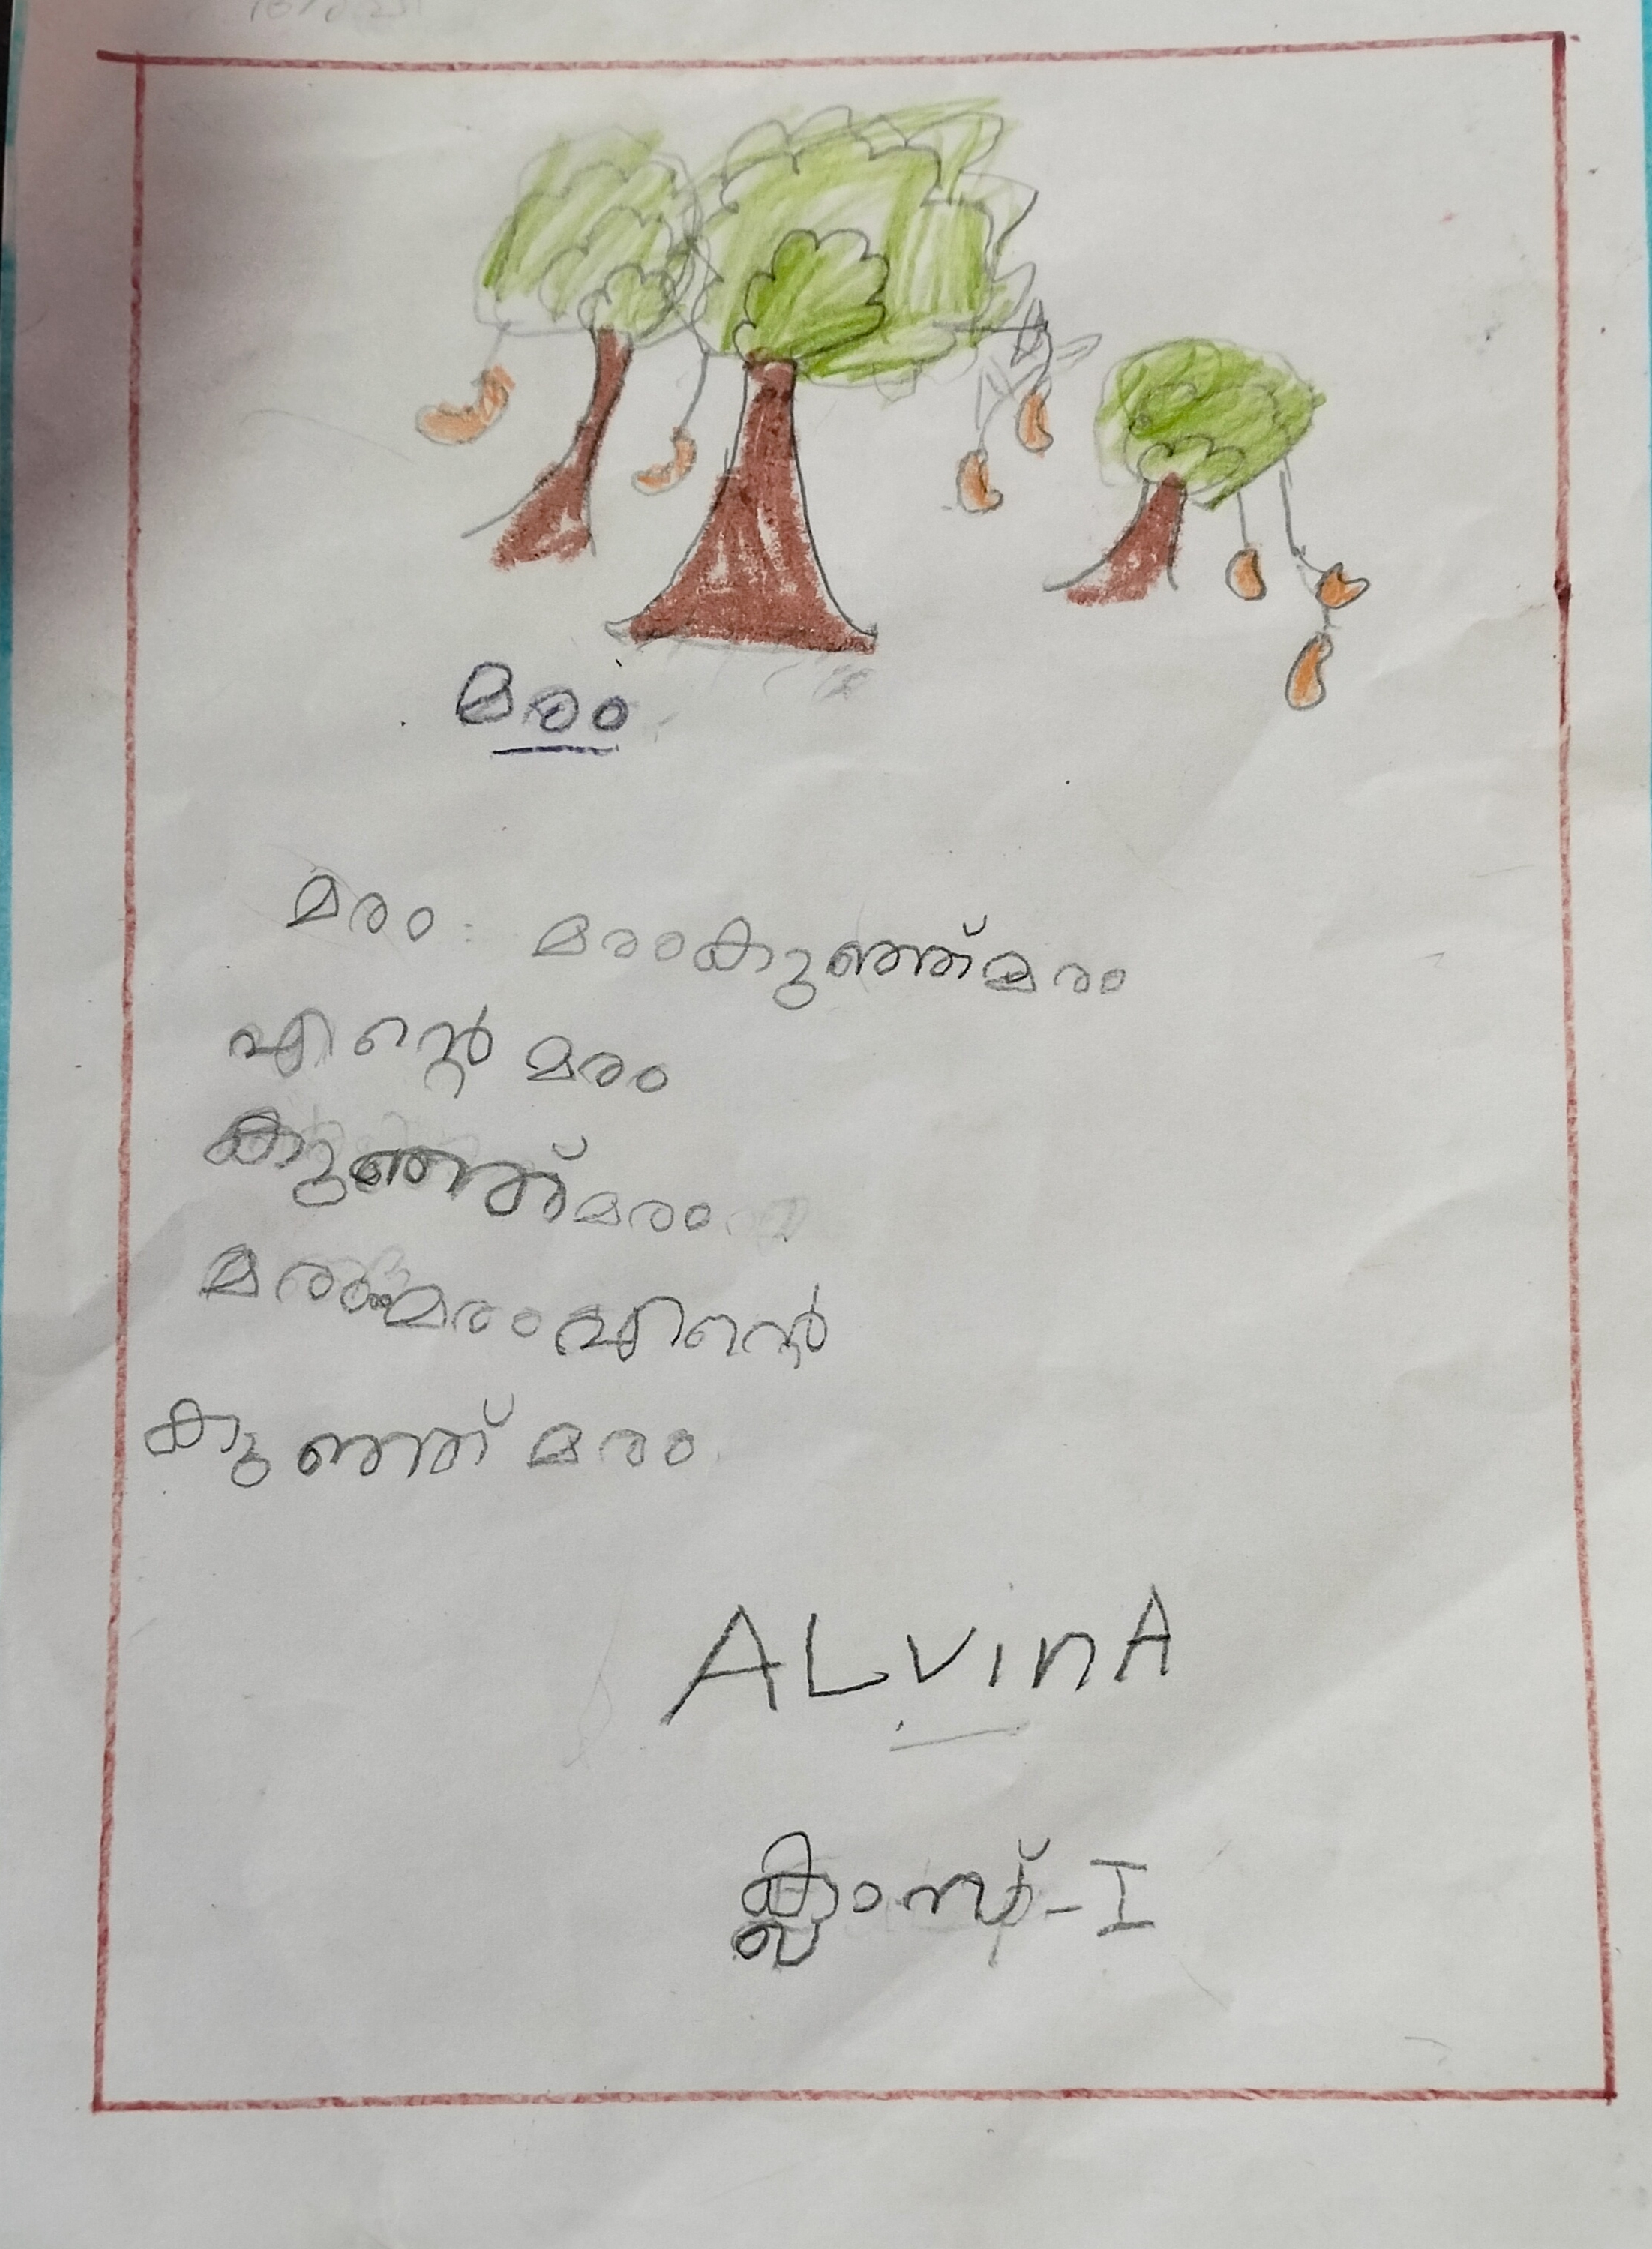 മരം
മരം: മരംകുഞ്ഞ്മരം
എന്റെ മരം
കുഞ്ഞ്മരം
മരം മരം എന്റെ
കുഞ്ഞ് മരം
ALvinA
ക്ലാസ്-I